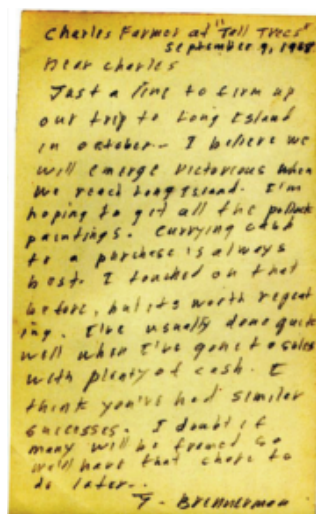 Charles Farmer at "Tall Trees"
September 9, 1968
Dear Charles
Just a line to firm up
our trip to Long Island
in october - I believe we
will emerge victorious when
we reach Long Island. I'm
hoping to get all the pollock
paintings. Carrying cash
to a purchase is always
best. I touched on that
before, but its worth repeat
ing. I've usually done quite
well when I've gone to sales
with plenty of cash. I
think you've had similar
successes. I doubt if
many will be framed so
we'll have that chore to
do later..
T. Brennerman